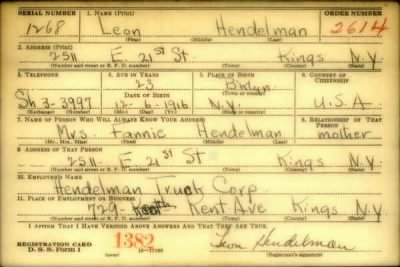 SERIAL NUMBER 1. NAME (Print) ORDER NUMBER
1268 Leon Hendelman 2614
(First) (Middle) (Last)
2. ADDRESS (Print)
2511 E. 21st St. Kings N.Y.
(Number and street or R. F. D. number) (Town) (County) (State)
3. TELEPHONE 4. AGE IN YEARS 5. PLACE OF BIRTH 6. COUNTRY OF CITIZENSHIP
23 Bklyn
DATE OF BIRTH (Town or county)
Sh 3-3997 12-6-1916 N.Y. U.S.A.
(Exchange) (Number) (Mo.) (Day) (Yr.) (State or country)
7. NAME OF PERSON WHO WILL ALWAYS KNOW YOUR ADDRESS 8. RELATIONSHIP OF THAT PERSON
Mrs. Fannie Hendelman mother
(Mr., Mrs., Miss) (First) (Middle) (Last)
9. ADDRESS OF THAT PERSON
2511 E 21st St Kings N.Y
(Number and street or R. F. D. number) (Town) (County) (State)
10. EMPLOYER'S NAME
Hendelman Truck Corp.
11. PLACE OF EMPLOYMENT OR BUSINESS
729 Kent Ave Kings N.Y
(Number and street or R. F. D. number) (Town) (County) (State)
I AFFIRM THAT I HAVE VERIFIED ABOVE ANSWERS AND THAT THEY ARE TRUE.
REGISTRATION CARD 1382 Leon Hendelman
D. S. S. Form 1 (over) 16—17105 (Registrant's signature)